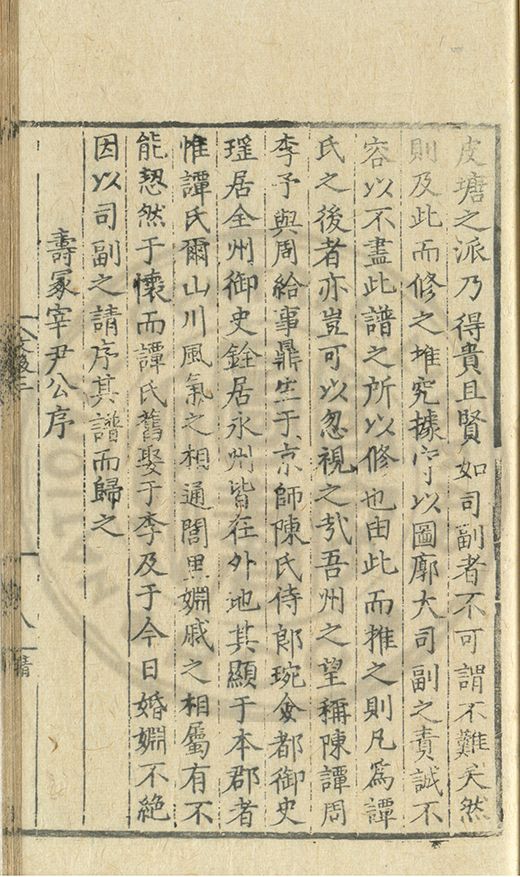 皮塘之派乃得貴且賢如司副者不可謂不難矣然
則及此而修之推究據守以圖廓大司副之責誠不
容以不盡此譜之所以修也由此而推之則凡為譚
氏之後者亦豈可以忽視之哉吾州之望稱陳譚周
李予與周給事鼎生于京師陳氏侍郎琬僉都御史
瑶居全州御史銓居永州皆在外地其顯于本郡者
惟譚氏爾山川風氣之相通閭里婣戚之相屬有不
能恝然于懷而譚氏舊娶于李及于今日婚婣不絶
因以司副之請序其譜而歸之
壽冢宰尹公序
八